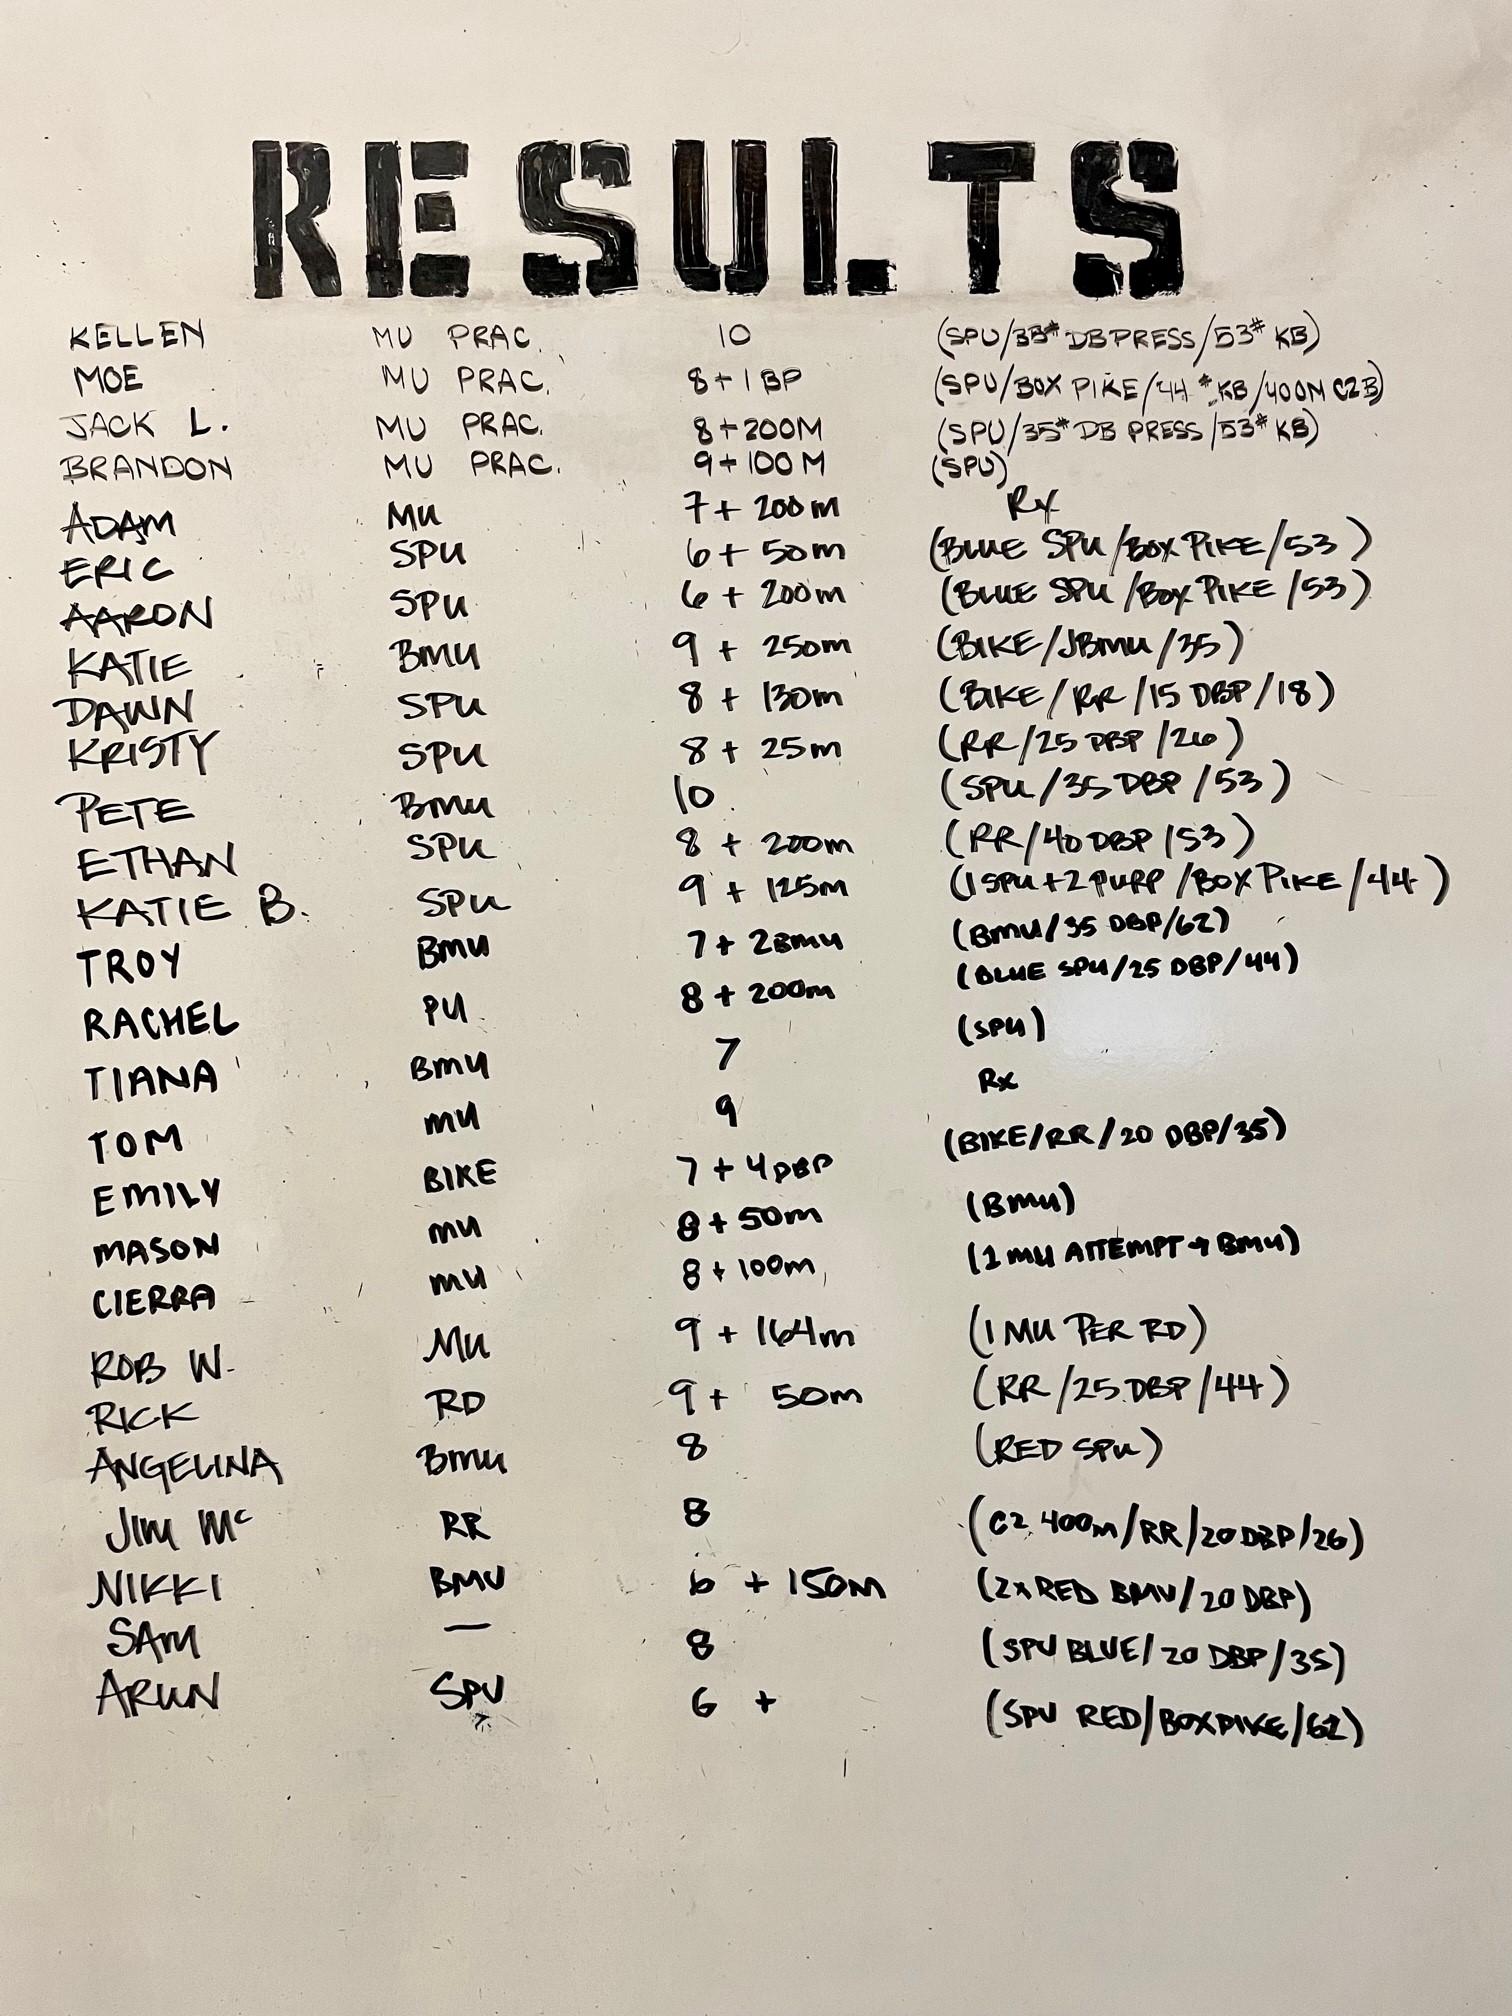 RESULTS
KELLEN MU PRAC. 10 (SPU/33# DB PRESS/53# KB)
MOE MU PRAC. 8+1 BP (SPU/BOX PIKE/44# KB/400M C2B)
JACK L. MU PRAC. 8+200M (SPU/35# DB PRESS/53# KB)
BRANDON MU PRAC. 9+100M (SPU)
ADAM MU 7+ 200m Rx
ERIC SPU 6+ 50m (BLUE SPU/BOX PIKE/53)
AARON SPU 6 + 200m (BLUE SPU/BOX PIKE/53)
KATIE BMU 9 + 250m (BIKE/JBMU/35)
DAWN SPU 8 + 130m (BIKE/RR/15 DBP/18)
KRISTY SPU 8 + 25m (RR/25 DBP/26)
PETE BMU 10 (SPU/35 DBP/53)
ETHAN SPU 8 + 200m (RR/40 DBP/53)
KATIE B. SPU 9 + 125m (1 SPU+2 PURP/BOX PIKE/44)
TROY BMU 7+ 2BMU (BMU/35 DBP/62)
RACHEL PU 8 + 200m (BLUE SPU/25 DBP/44)
TIANA BMU 7 (SPU)
TOM MU 9 Rx
EMILY BIKE 7 + 4DBP (BIKE/RR/20 DBP/35)
MASON MU 8+50m (BMU)
CIERRA MU 8+100m (1 MU ATTEMPT → BMU)
ROB W. MU 9 + 164m (1 MU PER RD)
RICK RD 9+ 50m (RR/25 DBP/44)
ANGELINA BMU 8 (RED SPU)
JIM Mc RR 8 (C2 400m/RR/20 DBP/26)
NIKKI BMU 6 + 150m (2x RED BMU/20 DBP)
SAM — 8 (SPU BLUE/20 DBP/35)
ARUN SPU 6 + (SPU RED/BOX PIKE/62)